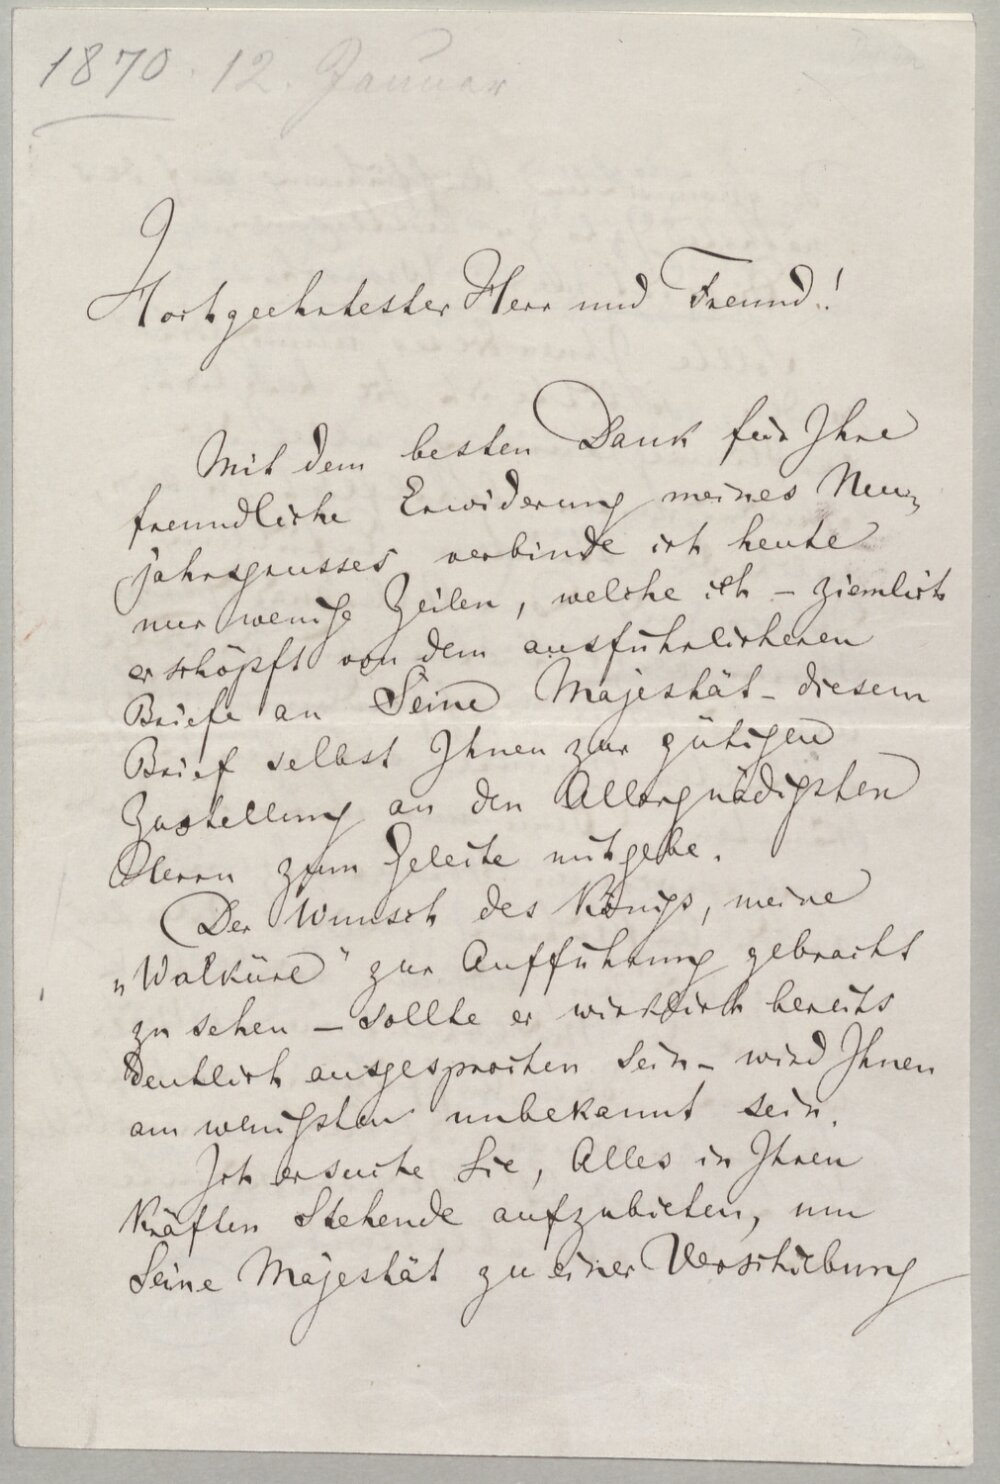 1870. 12. Januar
Hochgeehrtester Herr und Freund!
Mit dem besten Dank für Ihre
freundliche Erwiderung meines Neu-
jahrsgrusses verbinde ich heute
nur wenige Zeilen, welche ich – ziemlich
erschöpft von dem ausführlicheren
Briefe an Seine Majestät – diesem
Brief selbst Ihnen zur gütigen
Zustellung an den Allergnädigsten
Herrn zum Geleite mitgebe.
Der Wunsch des Königs, meine
„Walküre“ zur Aufführung gebracht
zu sehen – sollte er wirklich bereits
deutlich ausgesprochen sein – wird Ihnen
am wenigsten unbekannt sein.
Ich ersuche Sie, Alles in Ihren
Kräften Stehende aufzubieten, um
Seine Majestät zu einer Verschiebung